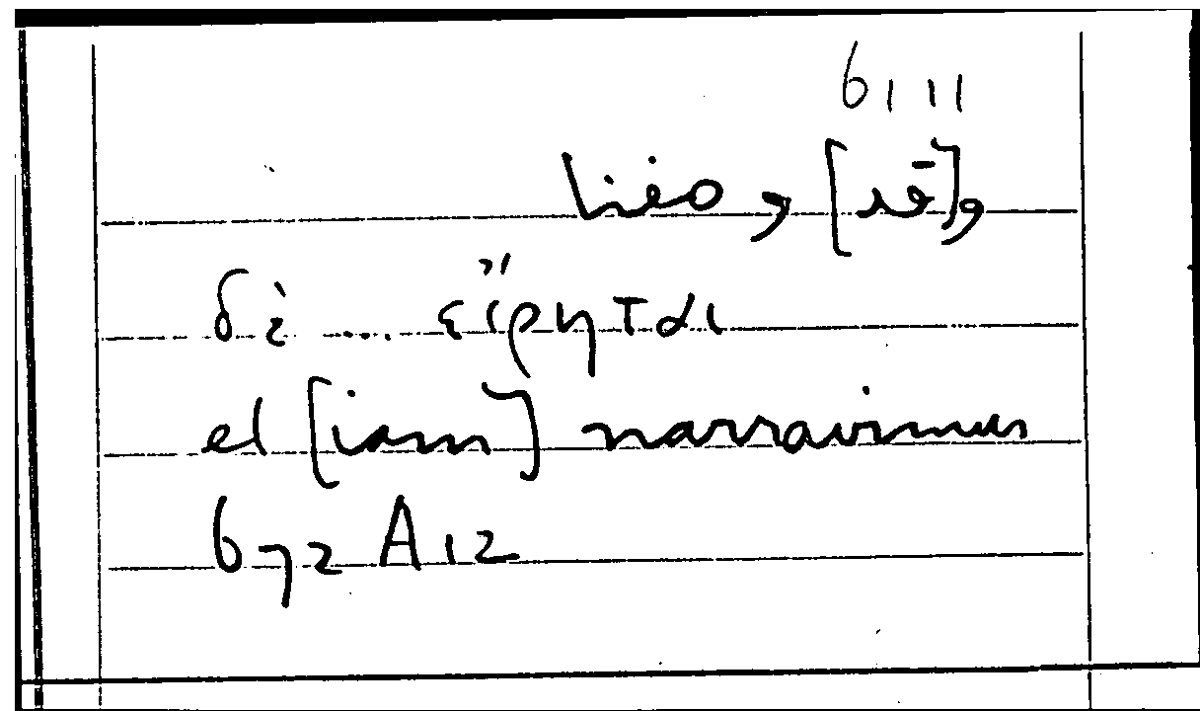 6, 11
δὲ .... εἴρηται
el [iam] narravimus
672 A 12